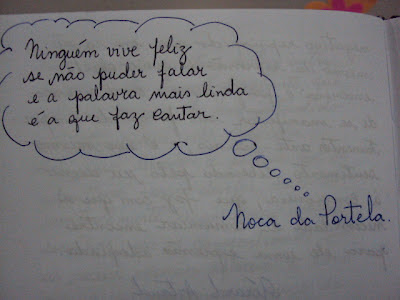 Ninguém vive feliz
se não puder falar
e a palavra mais linda
é a que faz cantar.
Noca da Portela.